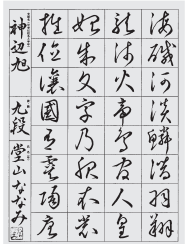 海鹹河淡鱗潜羽翔
龍師火帝鳥官人皇
始制文字乃服衣裳
推位讓國有虞陶唐
神辺旭 九段 堂山ななみ